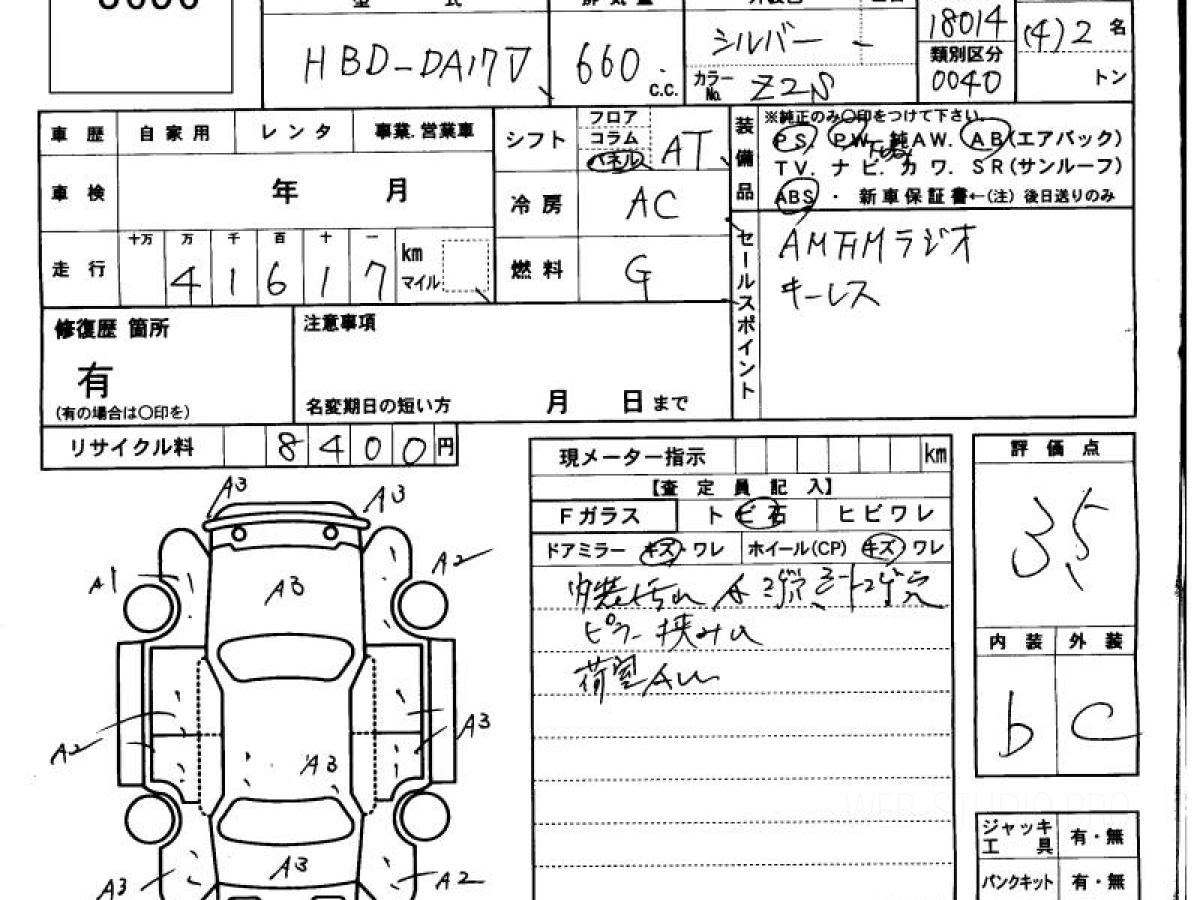 HBD-DA17V
660 c.c.
シルバー
カラー No. Z2S
18014
類別区分
0040
(4)2 名
トン
車歴 自家用 レンタ 事業.営業車
車検 年 月
走行 十万 万 千 百 十 一
4 1 6 1 7 km マイル
シフト フロア コラム パネル AT
冷房 AC
燃料 G
装備品
※純正のみ〇印をつけて下さい。
PS. PW. 純AW. AB(エアバック)
TV. ナビ. カワ. SR(サンルーフ)
ABS ・ 新車保証書←(注) 後日送りのみ
セールスポイント
AMFMラジオ
キーレス
修復歴 箇所
有
(有の場合は〇印を)
注意事項
名変期日の短い方 月 日 まで
リサイクル料 8 4 0 0 円
現メーター指示 km
【査定員記入】
Fガラス トビ石 ヒビワレ
ドアミラー キズ・ワレ ホイール(CP) キズ・ワレ
内装汚れ
ピラー挟み
荷室
評価点
3.5
内装 外装
b C
ジャッキ 工具 有・無
パンクキット 有・無
A3 A3
A1 A3 A2
A2 A3 A3
A3 A3 A2
WEB-STUDIO.PRO